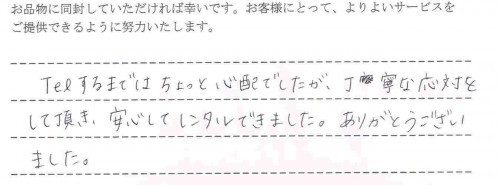 お品物に同封していただければ幸いです。お客様にとって、よりよいサービスを
ご提供できるように努力いたします。
Telするまではちょっと心配でしたが、丁寧な応対を
して頂き、安心してレンタルできました。ありがとうござい
ました。